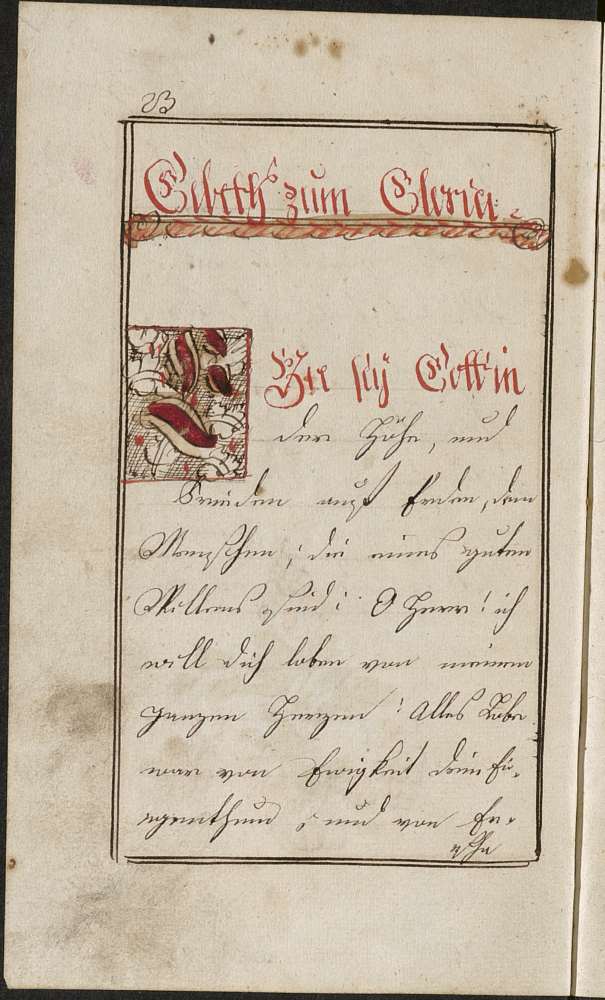 23
Gebeth zum Gloria.
Ehr sey Gott in
der Höhe, und
Frieden auf Erden, dem
Menschen; die eines guten
Willens sind: O Herr! ich
will dich loben von meinem
ganzen Herzen! Alles Lobe
war von Ewigkeit dein Ei-
genthum, und von